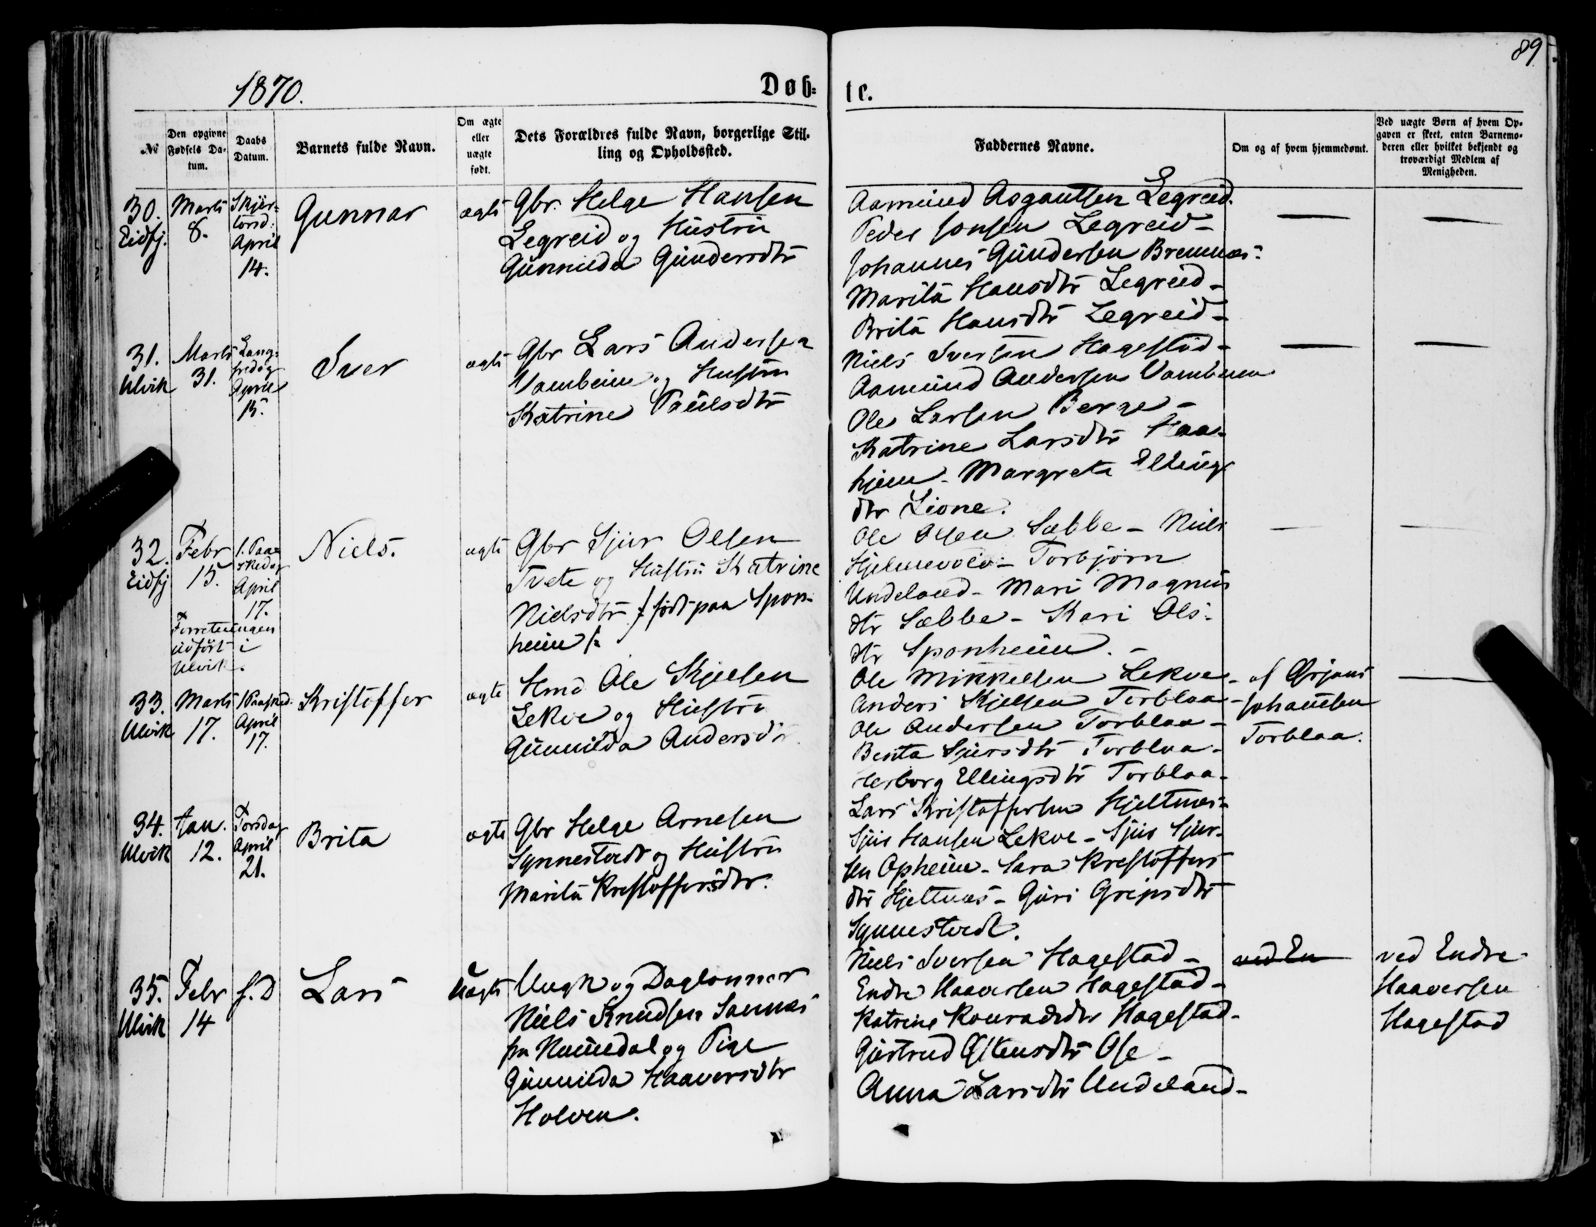 89
1870.
Døb-
te.
No
Den opgivne
Fødsels Da-
tum.
Daabs
Datum.
Barnets fulde Navn.
Om ægte
eller
uægte
født.
Dets Forældres fulde Navn, borgerlige Stil-
ling og Opholdssted.
Faddernes Navne.
Om og af hvem hjemmedømt.
Ved uægte Børn af hvem Op-
gaven er skeet, enten Barnemo-
deren eller hvilket bekjendt og
troværdigt Medlem af
Menigheden.
30.
Eidfj.
Marts
8.
Skjær-
torsd:
April
14.
Gunnar
ægte
Gbr. Helge Hansen
Legreid og Hustru
Gunnilda Gundersdtr
Aamund Asgautsen Legreid.
Peder Jonsen Legreid-
Johannes Gundersen Bremnæs-
Marita Hansdtr Legreid-
Brita Hansdtr Legreid-
31.
Ulvik
Marts
31.
Lang-
fredag
April
15.
Iver
ægte
Gbr Lars Andersen
Vambeim og Hustru
Katrine Paulsdtr
Niels Iversen Hagestad-
Aamund Andersen Vambeim
Ole Larsen Berge-
Katrine Larsdtr Haa-
hjem- Margreta Ellings
dtr Lione.
32.
Eidfj
Febr
15.
1. Paa-
skedag
April
17.
Forretningen
udført i
Ulvik.
Niels.
ægte
Gbr Sjur Olsen
Tveit og Hustru Katrine
Nielsdtr /: født paa Spon-
heim :/
Ole Olsen Sæbbe - Niels
Hjelmevold - Torbjørn
Undeland - Mari Magnus
dtr Sæbbe - Kari Ols-
dtr Sponheim. -
33.
Ulvik
Marts
17.
1 Paasked.
April
17.
Kristoffer
ægte
Hmd Ole Kjelsen
Lekve og Hustru
Gunnilda Andersdtr.
Ole Mikkelsen Lekve-
Anders Kjelsen Torblaa-
Ole Andersen Torblaa-
Benta Sjursdtr Torblaa-
Herborg Ellingsdtr Torblaa-
af Ørjans
Johannesen
Torblaa.
34.
Ulvik
Jan.
12.
Torsdag
April
21.
Brita
ægte
Gbr Helge Arnesen
Synnestvedt og Hustru
Marita Kristoffersdtr.
Lars Kristoffersen Hjeltnæs-
Sjur Hansen Lekve - Sjur Sjur-
sen Opheim - Sara Kristoffers
dtr Hjeltnæs - Guri Gripsdtr
Synnestvedt.
35.
Ulvik
Febr
14
s. D
Lars
Uægte
Ungk og Daglønner
Niels Knudsen Sannæs
fra Numedal og Pige
Gunnilda Haaversdtr
Holven.
Niels Iversen Hagestad -
Endre Haaversen Hagestad-
Katrine Konradsdtr Hagestad-
Gjertrud Østensdtr Ose -
Anna Larsdtr Undeland-
ved En
ved Endre
Haaversen
Hagestad